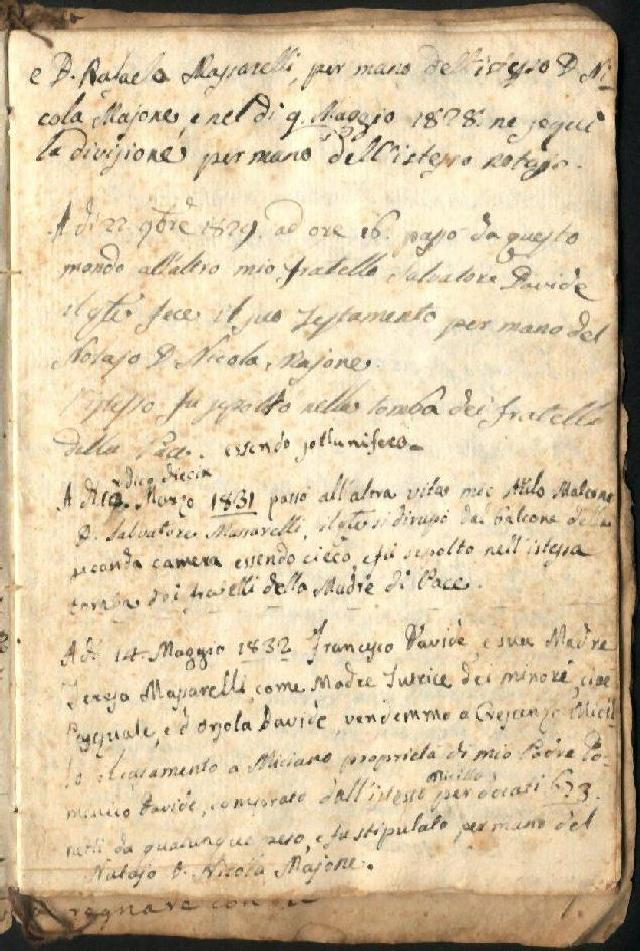 e D. Rafaela Massarelli, per mano dell'istesso D. Ni-
cola Majone, e nel di 9. Maggio 1828. ne seguì
la divisione per mano dell'istesso notajo.
A di 22. 9bre 1829. ad ore 16. passò da questo
mondo all'altro mio fratello Salvatore Davide
il qle fece il suo Testamento per mano del
Notajo D. Nicola Majone.
L'istesso fu sepolto nella tomba dei fratelli
della Pace. essendo
dico dieci
A di 10. Marzo 1831 passò all'altra vita mio
D. Salvatore Massarelli, il qle si dirupò dal balcone della
seconda camera essendo cieco, e fù sepolto nell'istessa
tomba dei fratelli della Madre di Pace.
A di 14. Maggio 1832 Francesco Davide, e sua Madre
Teresa Massarelli, come Madre Tutrice dei minori, cioè
Pasquale, e d'Orsola Davide vendemmo a Crescenzo Micil-
lo il casamento a Miciano proprietà di mio Padre Do-
menico Davide, comprato dall'istesso Micillo per docati 673.
netti da qualunque peso, e fu stipulato per mano del
Notajo D. Nicola Majone.
regnare con